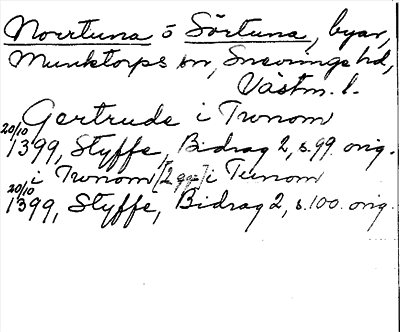 Norrtuna o Sörtuna, byar,
Munktorps sn, Snevringe hd,
Västm. l.
Gertrude i Tvnom
20/10 1399, Styffe, Bidrag 2, s. 99. orig.
i Tvnom [2 ggr] i Tunom
20/10 1399, Styffe, Bidrag 2, s. 100. orig.